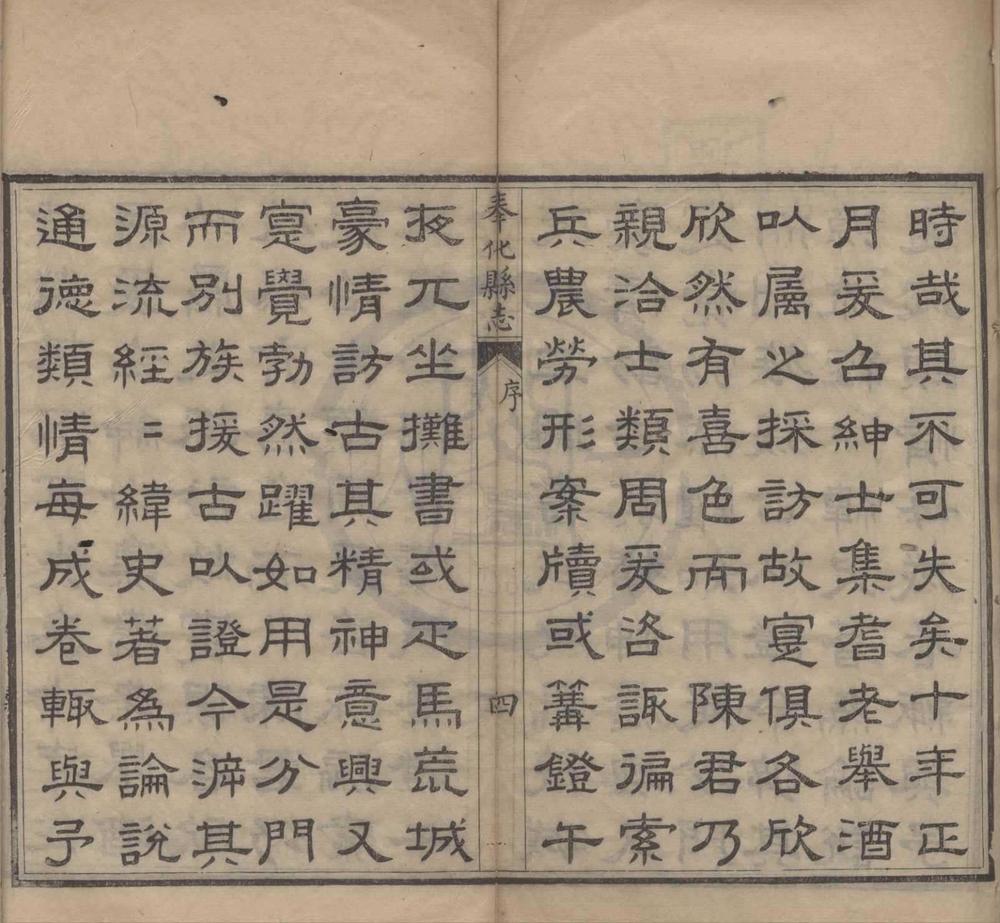 時哉其不可失矣十年正
月爰召紳士集耆老舉酒
以屬之採訪故寔俱各欣
欣然有喜色而陳君乃
親洽士類周爰咨諏徧索
兵農勞形案牘或篝鐙午
奉化縣志
序
四
夜兀坐攤書或疋馬荒城
豪情訪古其精神意興又
寔覺勃然躍如用是分門
而別族援古以證今溯其
源流經〻緯史著為論說
通德類情每成卷輒與予